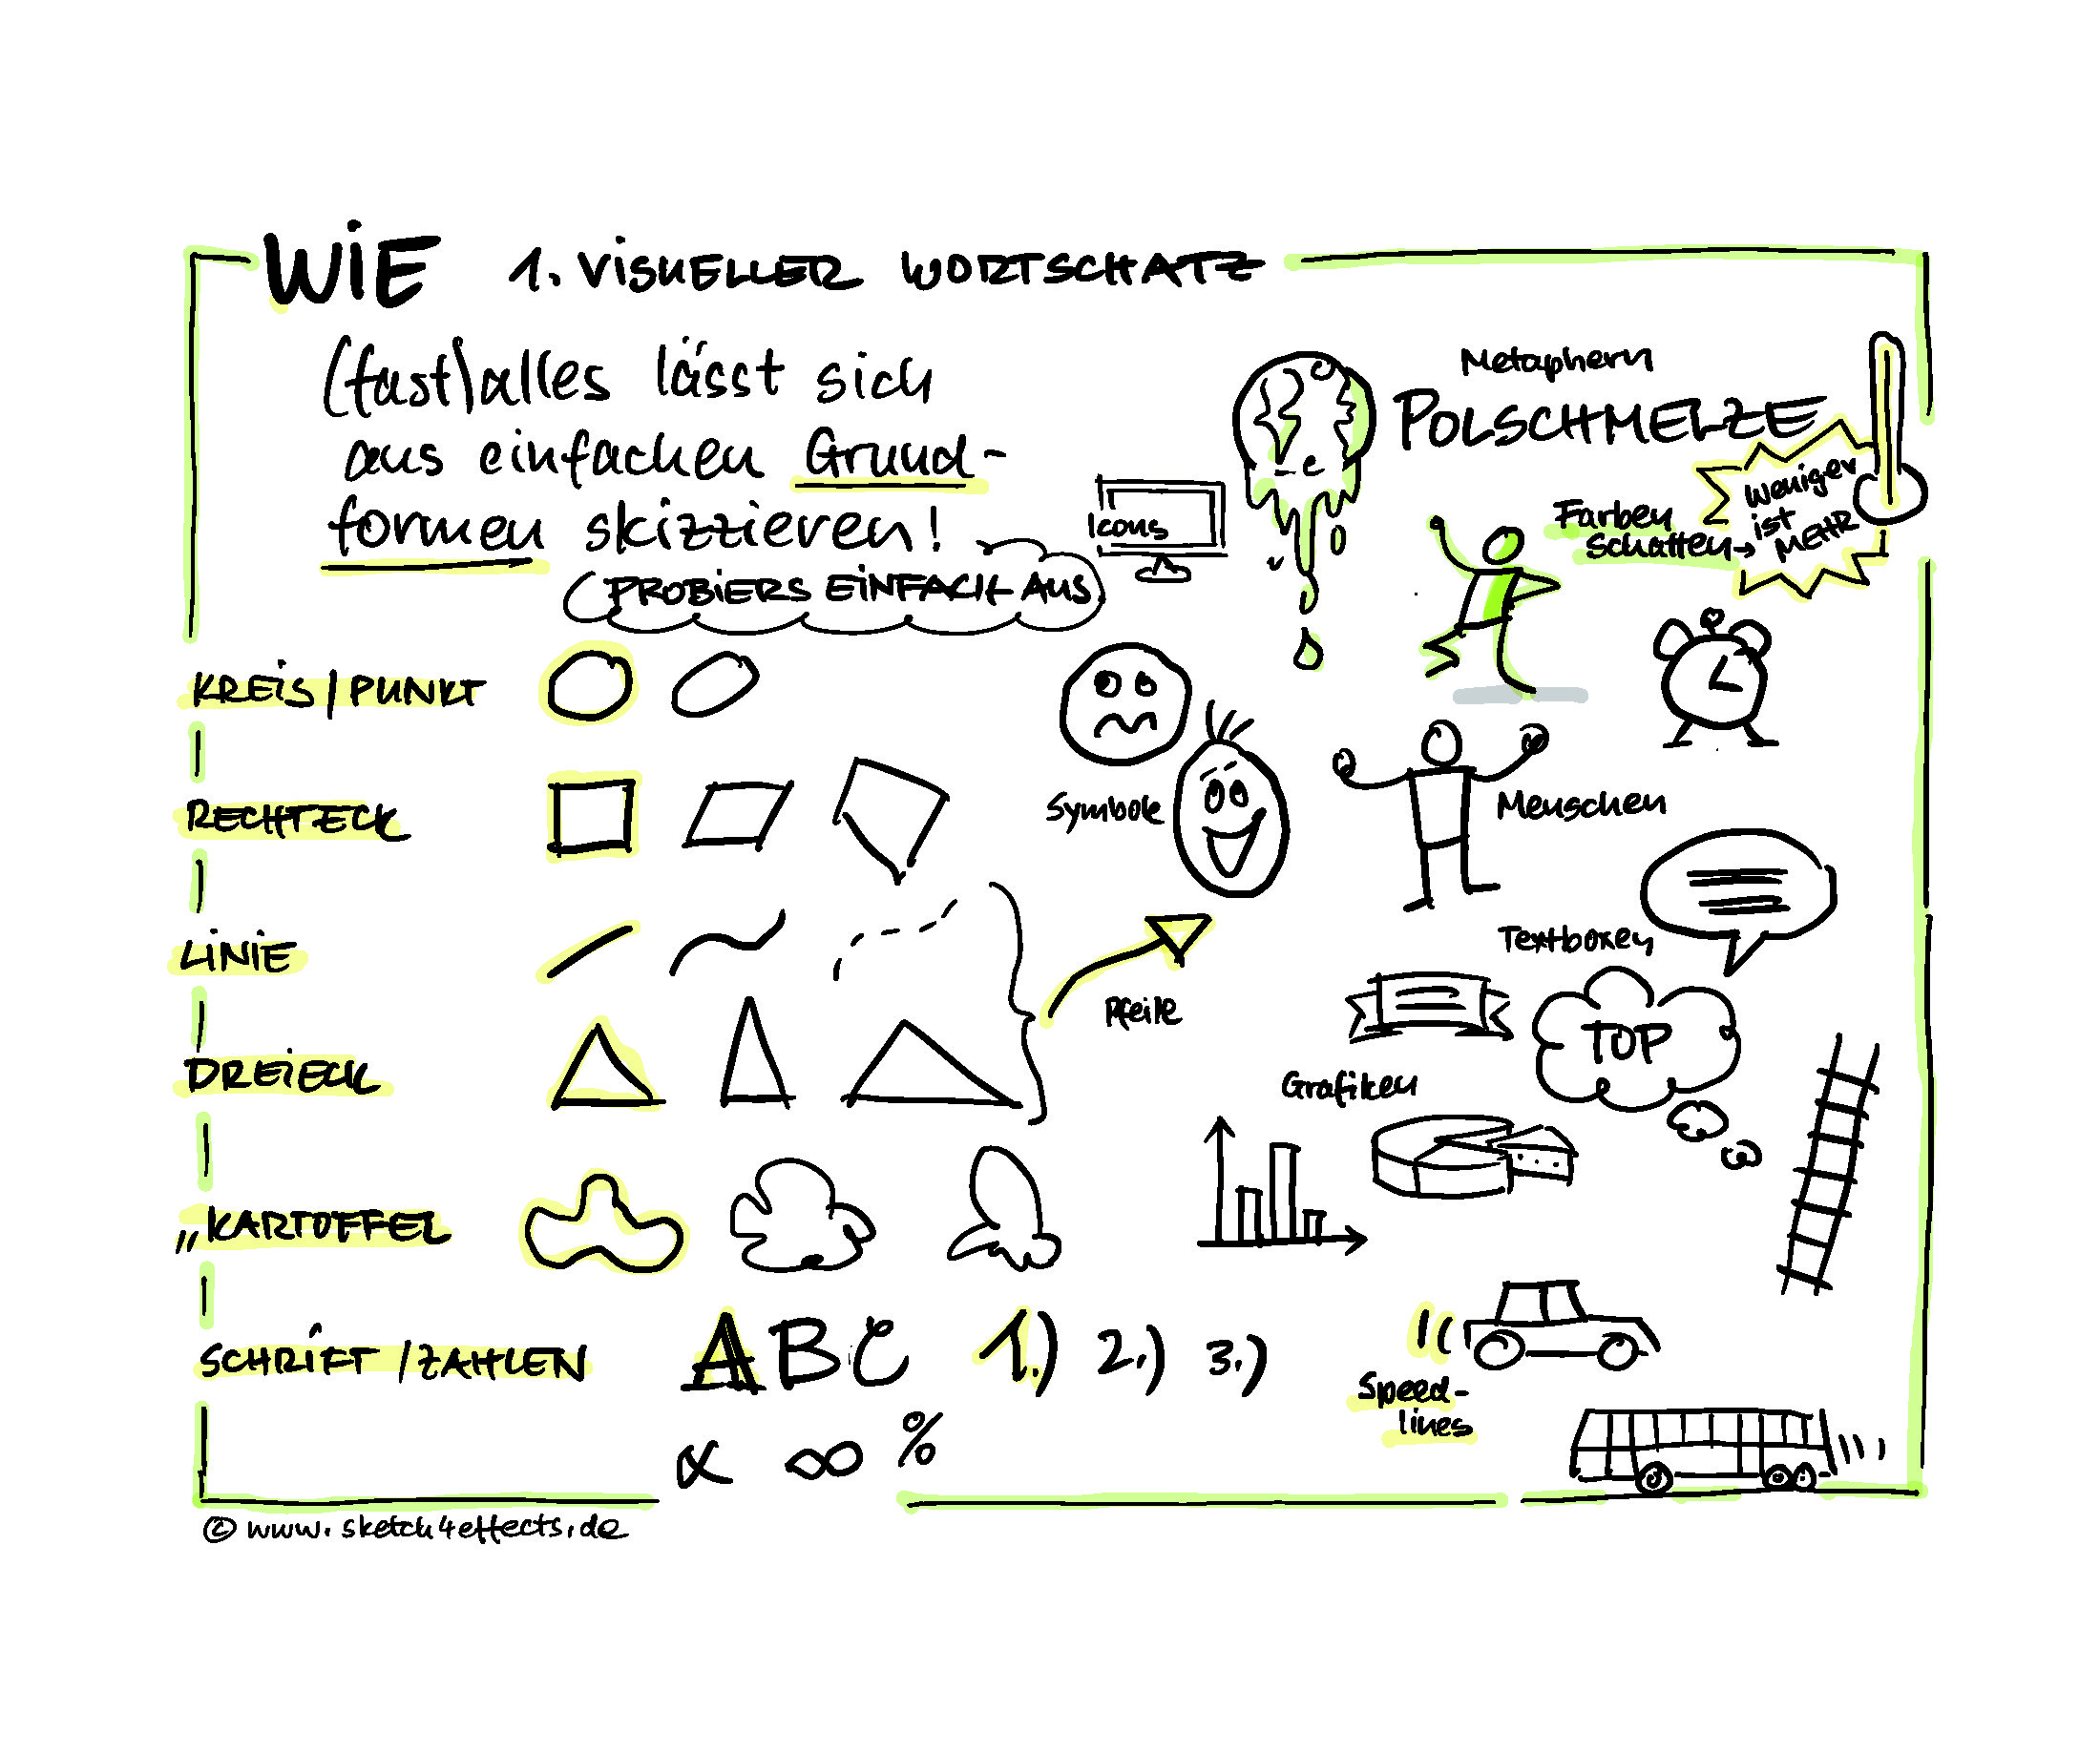 WiE 1. ViSuELLER WORTSCHATZ
(fast) alles lässt sich
aus einfachen Grund-
formen skizzieren!
PROBiERS EiNFACH AUS
Icons
Metaphern
POLSCHMELZE
Farben
Schatten→
Weniger
ist
MEHR
KREiS/PUNKT
RECHTECK
Symbole
Menschen
LiNiE
Pfeile
Textboxen
TOP
DREiECK
Grafiken
„KARTOFFEL
SCHRiFT/ZAHLEN
A B C 1.) 2.) 3.)
∝ ∞ %
Speed-
lines
© www.sketch4effects.de